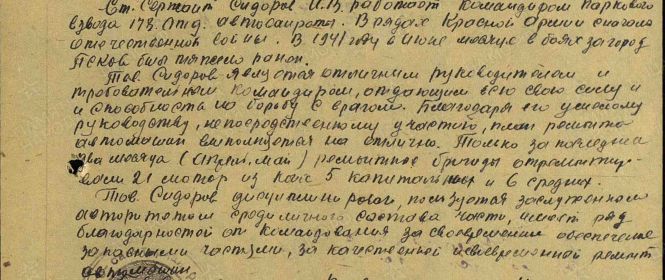 Ст. Сержант Сидоров И.В. работает командиром паркового
взвода 173 Отд. автосанроты. В рядах Красной Армии с начала
отечественной войны. В 1941 году в июне месяце в боях за город
Псков был тяжело ранен.
Тов. Сидоров является отличным руководителем и
требовательным командиром, отдающим всю свою силу и
и способности на борьбу с врагом. Благодаря его умелому
руководству, непосредственному участию, план ремонта
автомашин выполняется на отлично. Только за последние
два месяца (апрель, май) ремонтные бригады отремонтиро-
вали 21 мотор из них 5 капитальных и 6 средних.
Тов. Сидоров дисциплинирован, пользуется заслуженном
авторитетом среди личного состава части, имеет ряд
благодарностей от командования за своевременное обеспечение
запасными частями, за качественный и своевременной ремонт
автомашин.